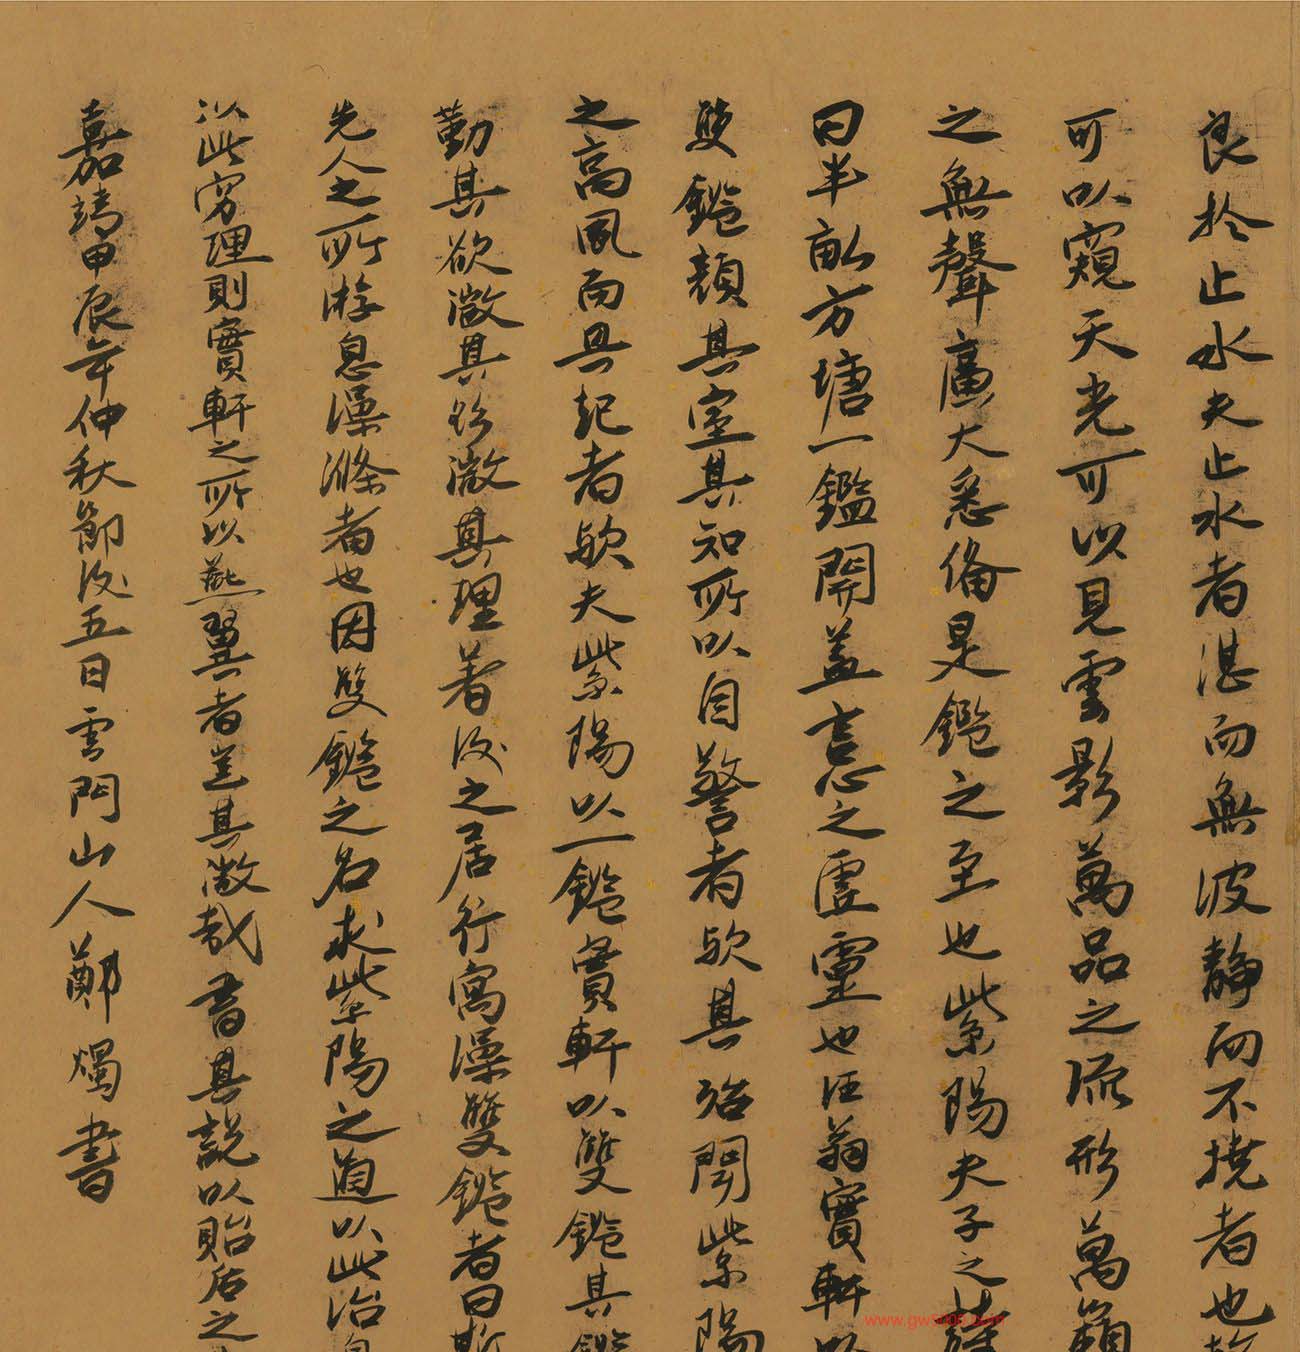 良於止水夫止水者湛而無波靜而不撓者也故
可以窺天光可以見雲影萬品之流形萬籟
之無聲廣大悉備是鑑之至也紫陽夫子之詩
曰半畝方塘一鑑開蓋言心之虛靈也汪翁實軒以
雙鑑顏其室其知所以自警者歟其殆聞紫陽
之高風而興起者歟夫紫陽以一鑑實軒以雙鑑其鑑
勤其欲澂其理著後之居行寓澡雙鑑者曰斯
先人之所游息澡滌者也因雙鑑之名求紫陽之道以此治身
以此窮理則實軒之所以燕翼者豈其微哉書其說以貽后之
嘉靖甲辰年仲秋節後五日雲門山人鄭燭書
www.gw5000.com